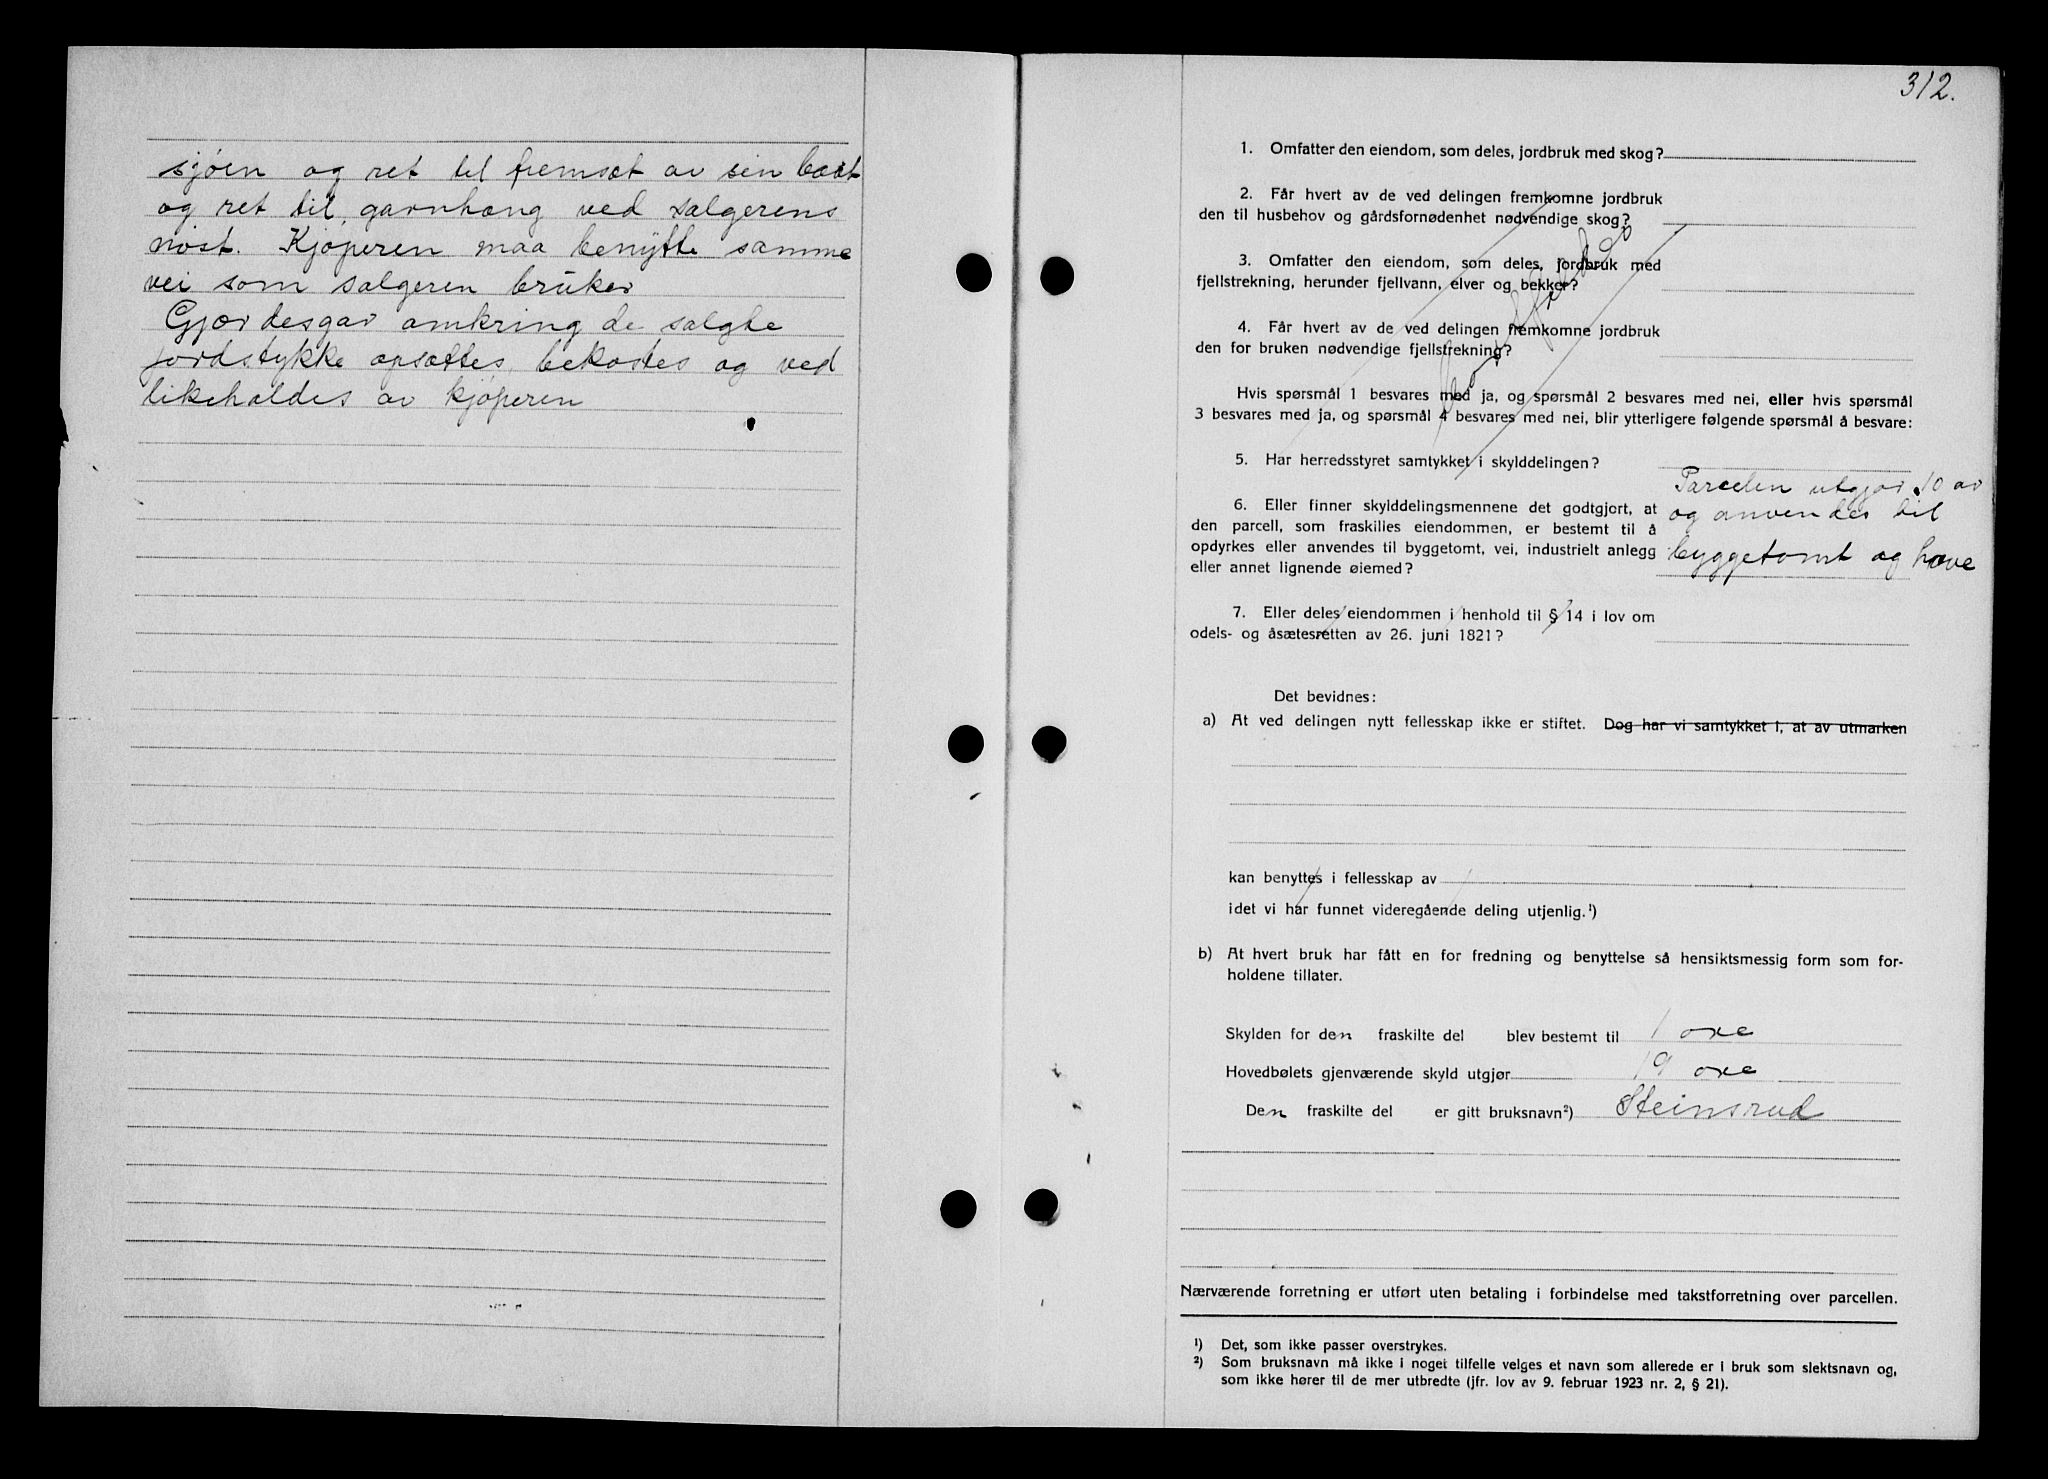 sjøen og ret til fremsæt av sin baat
og ret til garnhang ved sælgerens
nøst. Kjøperen maa benytte samme
vei som sælgeren bruker
Gjærdesgar omkring de solgte
jordstykke opsættes, bekostes og ved
likeholdes av kjøperen
312.
1. Omfatter den eiendom, som deles, jordbruk med skog?
2. Får hvert av de ved delingen fremkomne jordbruk
den til husbehov og gårdsfornødenhet nødvendige skog?
3. Omfatter den eiendom, som deles, jordbruk med
fjellstrekning, herunder fjellvann, elver og bekker?
4. Får hvert av de ved delingen fremkomne jordbruk
den for bruken nødvendige fjellstrekning?
Hvis spørsmål 1 besvares med ja, og spørsmål 2 besvares med nei, eller hvis spørsmål
3 besvares med ja, og spørsmål 4 besvares med nei, blir ytterligere følgende spørsmål å besvare:
5. Har herredsstyret samtykket i skylddelingen?
6. Eller finner skylddelingsmennene det godtgjort, at
den parcell, som fraskilles eiendommen, er bestemt til å
opdyrkes eller anvendes til byggetomt, vei, industrielt anlegg
eller annet lignende øiemed?
Parcelen utgjør 10 ar
og anvendes til
byggetomt og have
7. Eller deles eiendommen i henhold til § 14 i lov om
odels- og åsætesretten av 26. juni 1821?
Det bevidnes:
a) At ved delingen nytt fellesskap ikke er stiftet. Dog har vi samtykket i, at av utmarken
kan benyttes i fellesskap av
idet vi har funnet videregående deling utjenlig.¹)
b) At hvert bruk har fått en for fredning og benyttelse så hensiktsmessig form som for-
holdene tillater.
Skylden for den fraskilte del blev bestemt til 1 øre
Hovedbølets gjenværende skyld utgjør 19 øre
Den fraskilte del er gitt bruksnavn²) Steinsrud
Nærværende forretning er utført uten betaling i forbindelse med takstforretning over parcellen.
¹) Det, som ikke passer overstrykes.
²) Som bruksnavn må ikke i noget tilfelle velges et navn som allerede er i bruk som slektsnavn og,
som ikke hører til de mer utbredte (jfr. lov av 9. februar 1923 nr. 2, § 21).